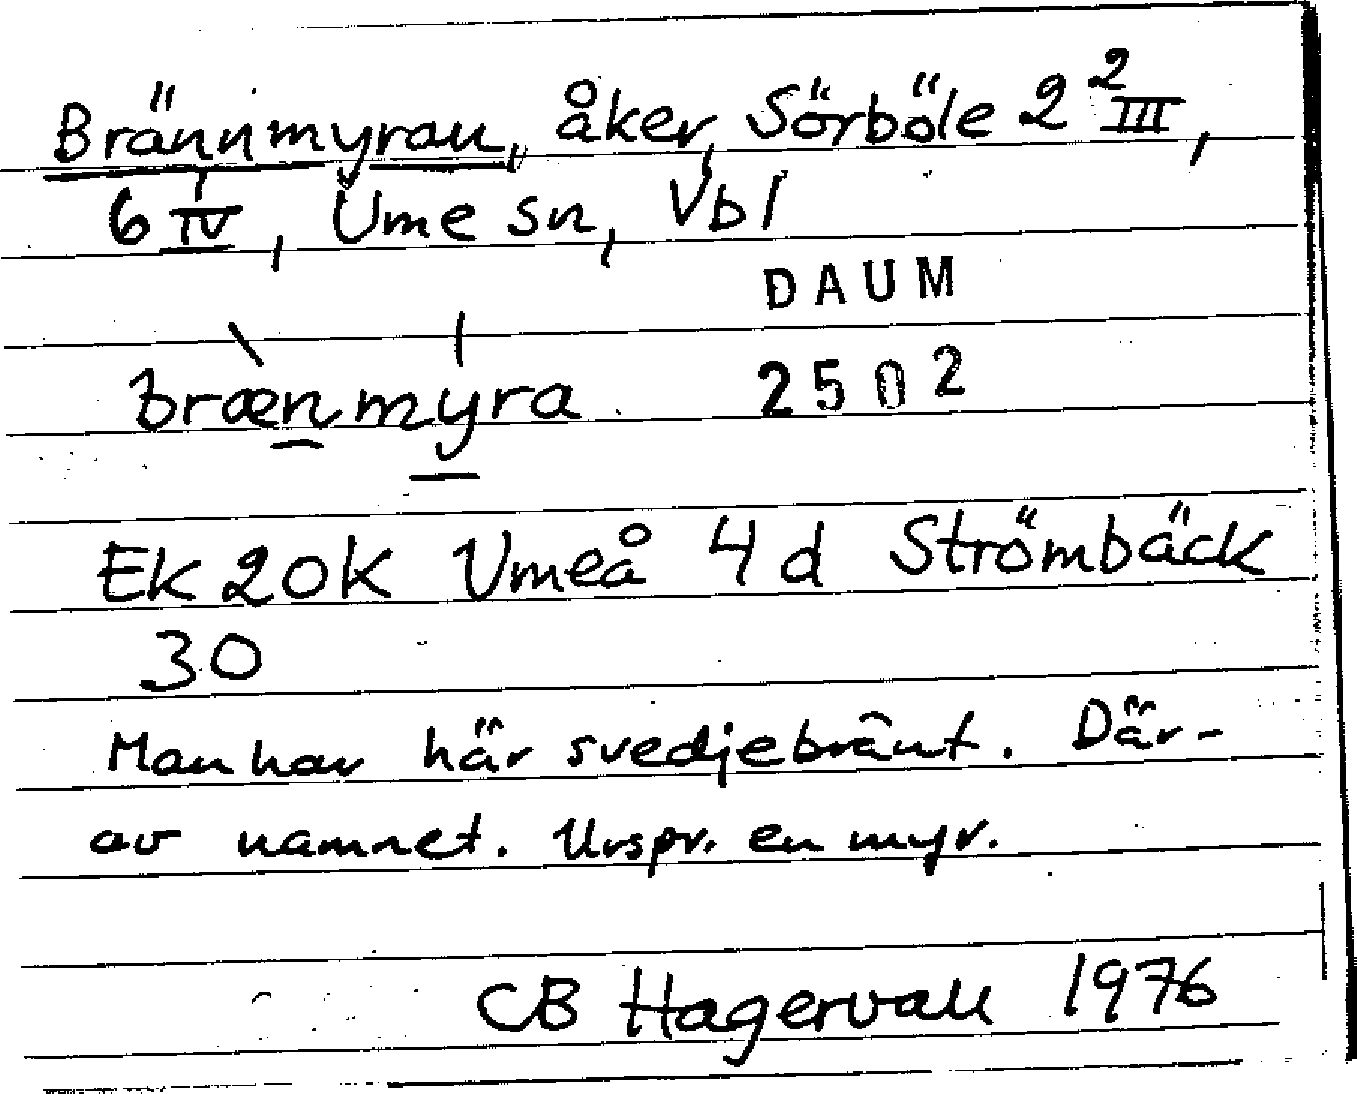 Brännmyran, åker, Sörböle 2 2 III,
6 1 IV, Ume sn, Vbl
DAUM
brænmyra 2502
Ek 20K Umeå 4d Strömbäck
30
Man har här svedjebränt. Där-
av namnet. Urspr. en myr.
CB Hagervall 1976